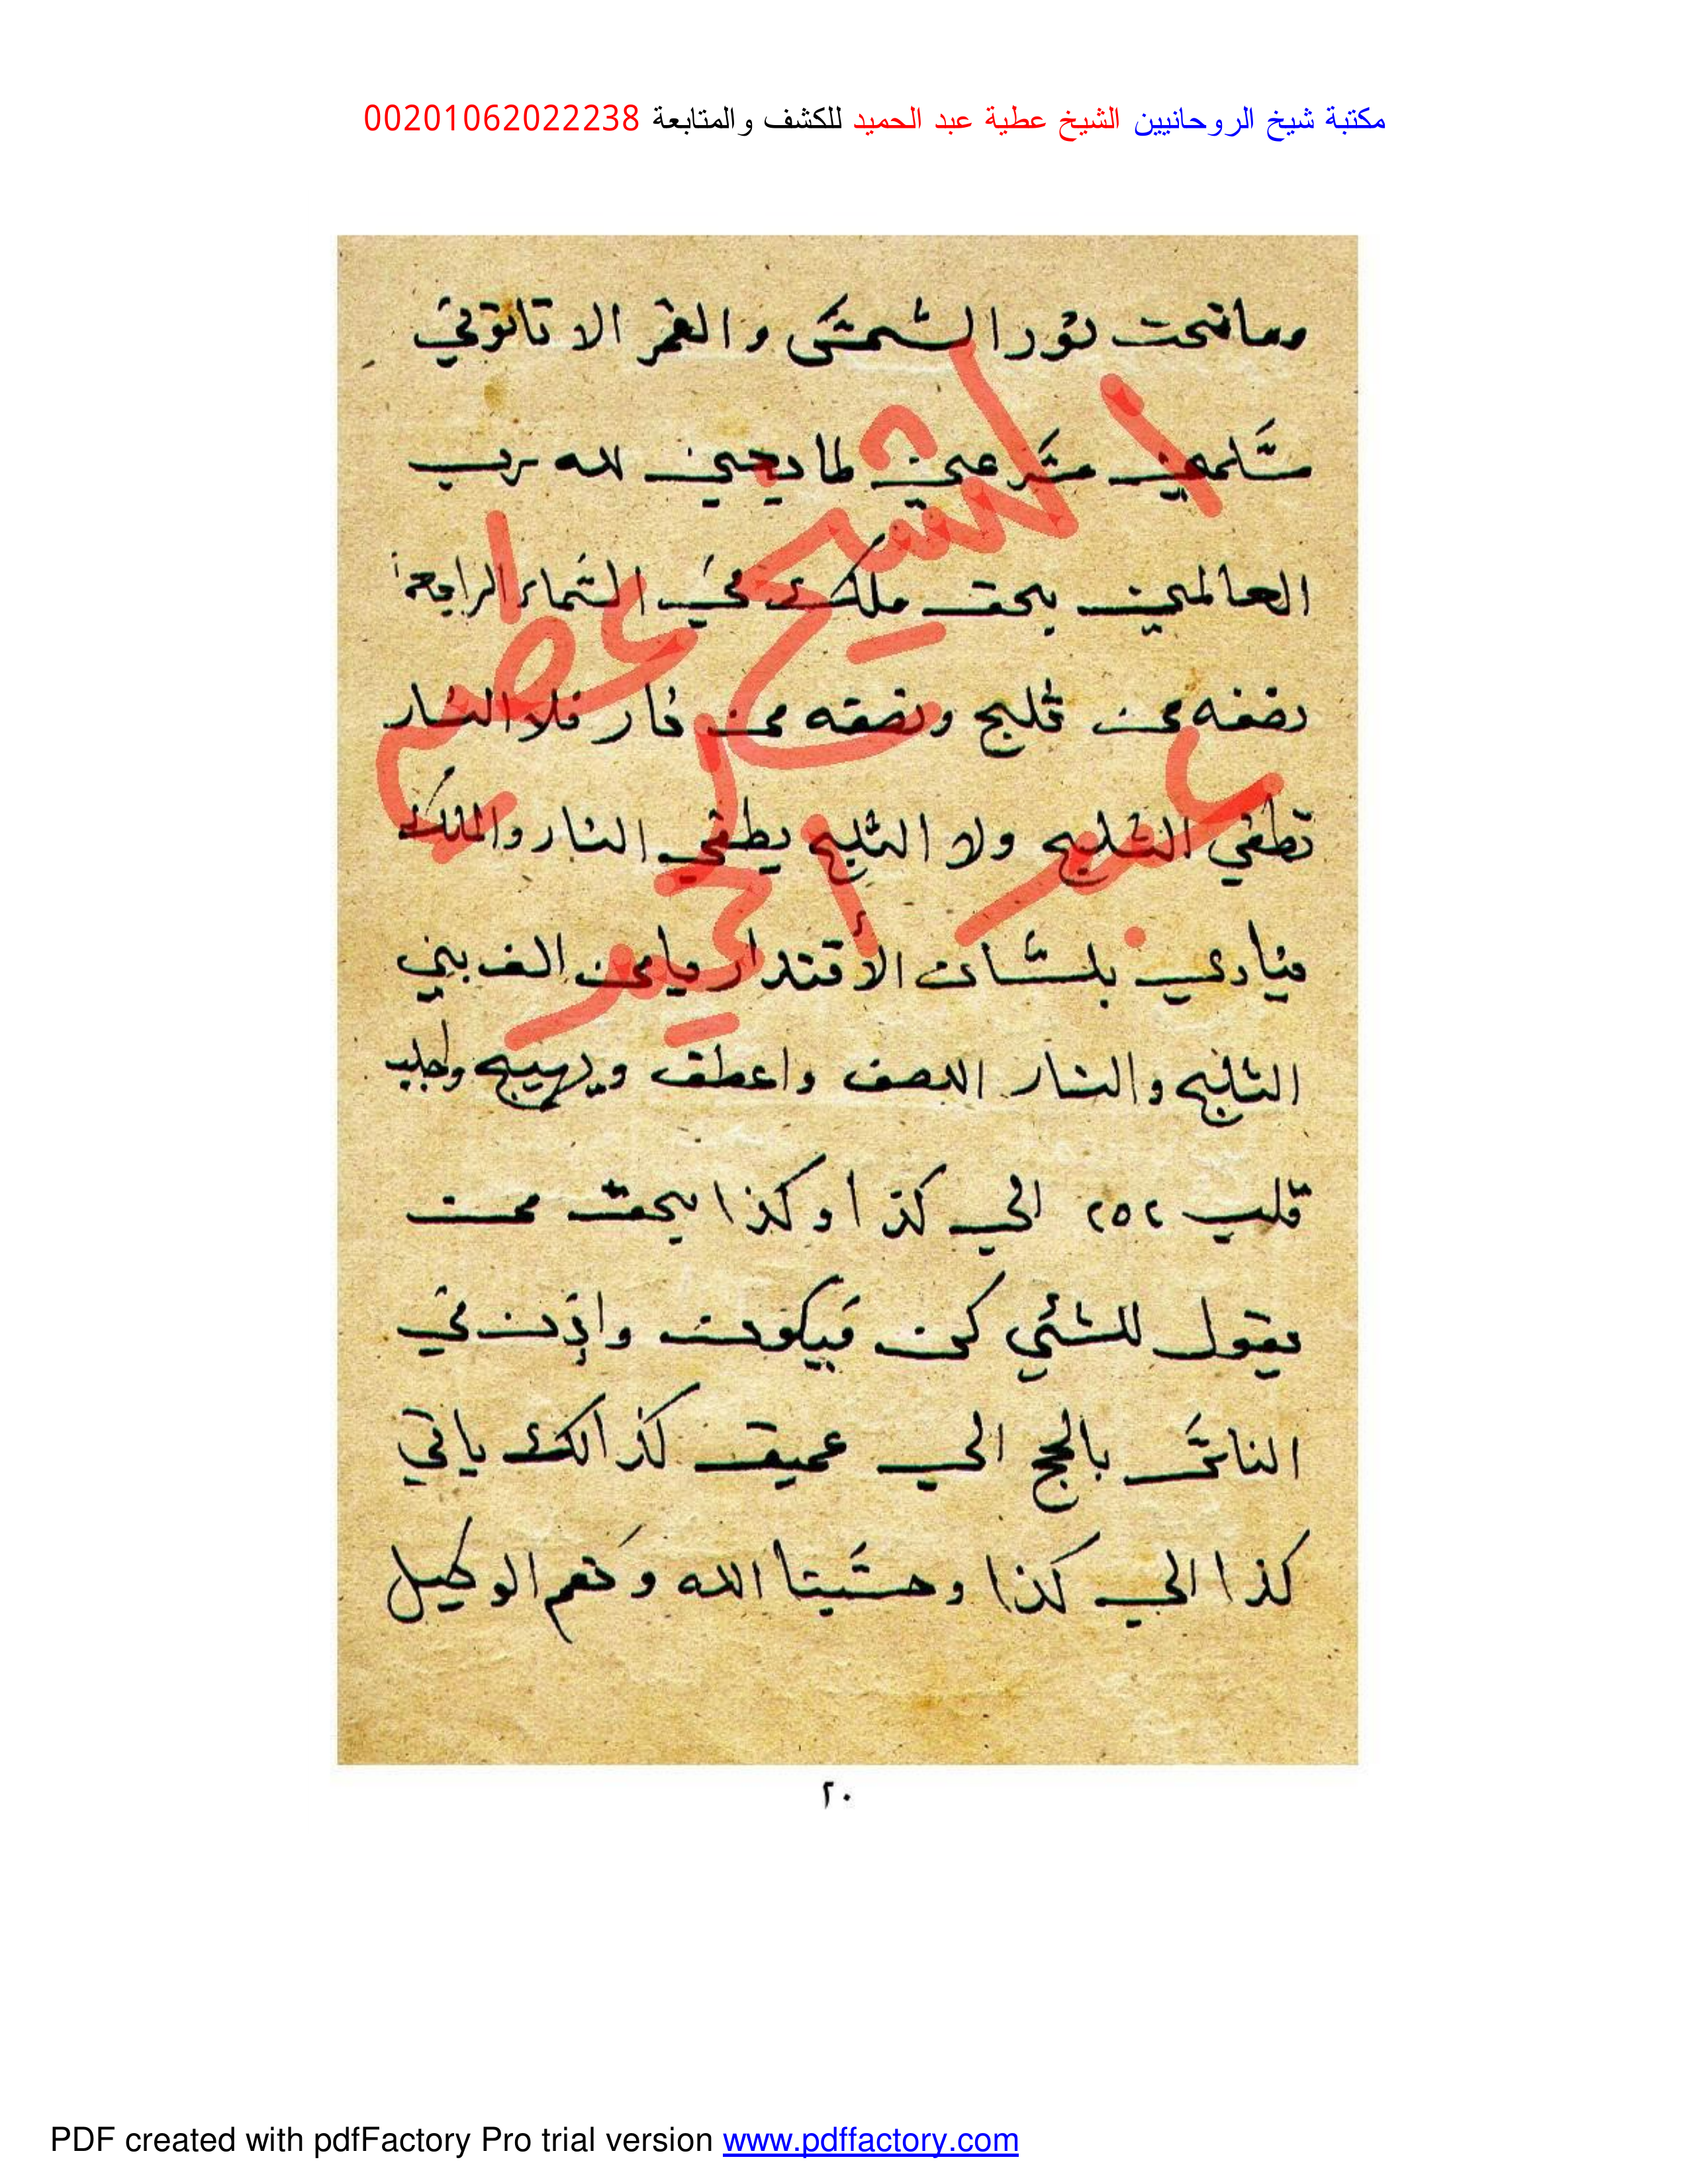 مكتبة شيخ الروحانيين الشيخ عطية عبد الحميد للكشف والمتابعة 00201062022238
وما تحت نور الشمس والقمر الا تاتوني
سامعين مسرعين طايعين لله رب
العالمين بحق ملك في السماء الرابعة
نصفه من ثليج ونصفه من نار فلا النار
تطفي الثليج ولا الثليج يطفي النار والملك
ينادي بلسان الأقتدار يامن الف بين
الثليج والنار اللصف واعطف ويهيج واجلب
قلب ٢٥٢ الي كذا وكذا بحق من
يقول للشئي كن فيكون واذن في
الناس بالحج الي عميق كذالك ياتي
كذا الي كذا وحسبنا الله ونعم الوكيل
الشيخ عطية
عبد الحميد
٢٠
PDF created with pdfFactory Pro trial version www.pdffactory.com